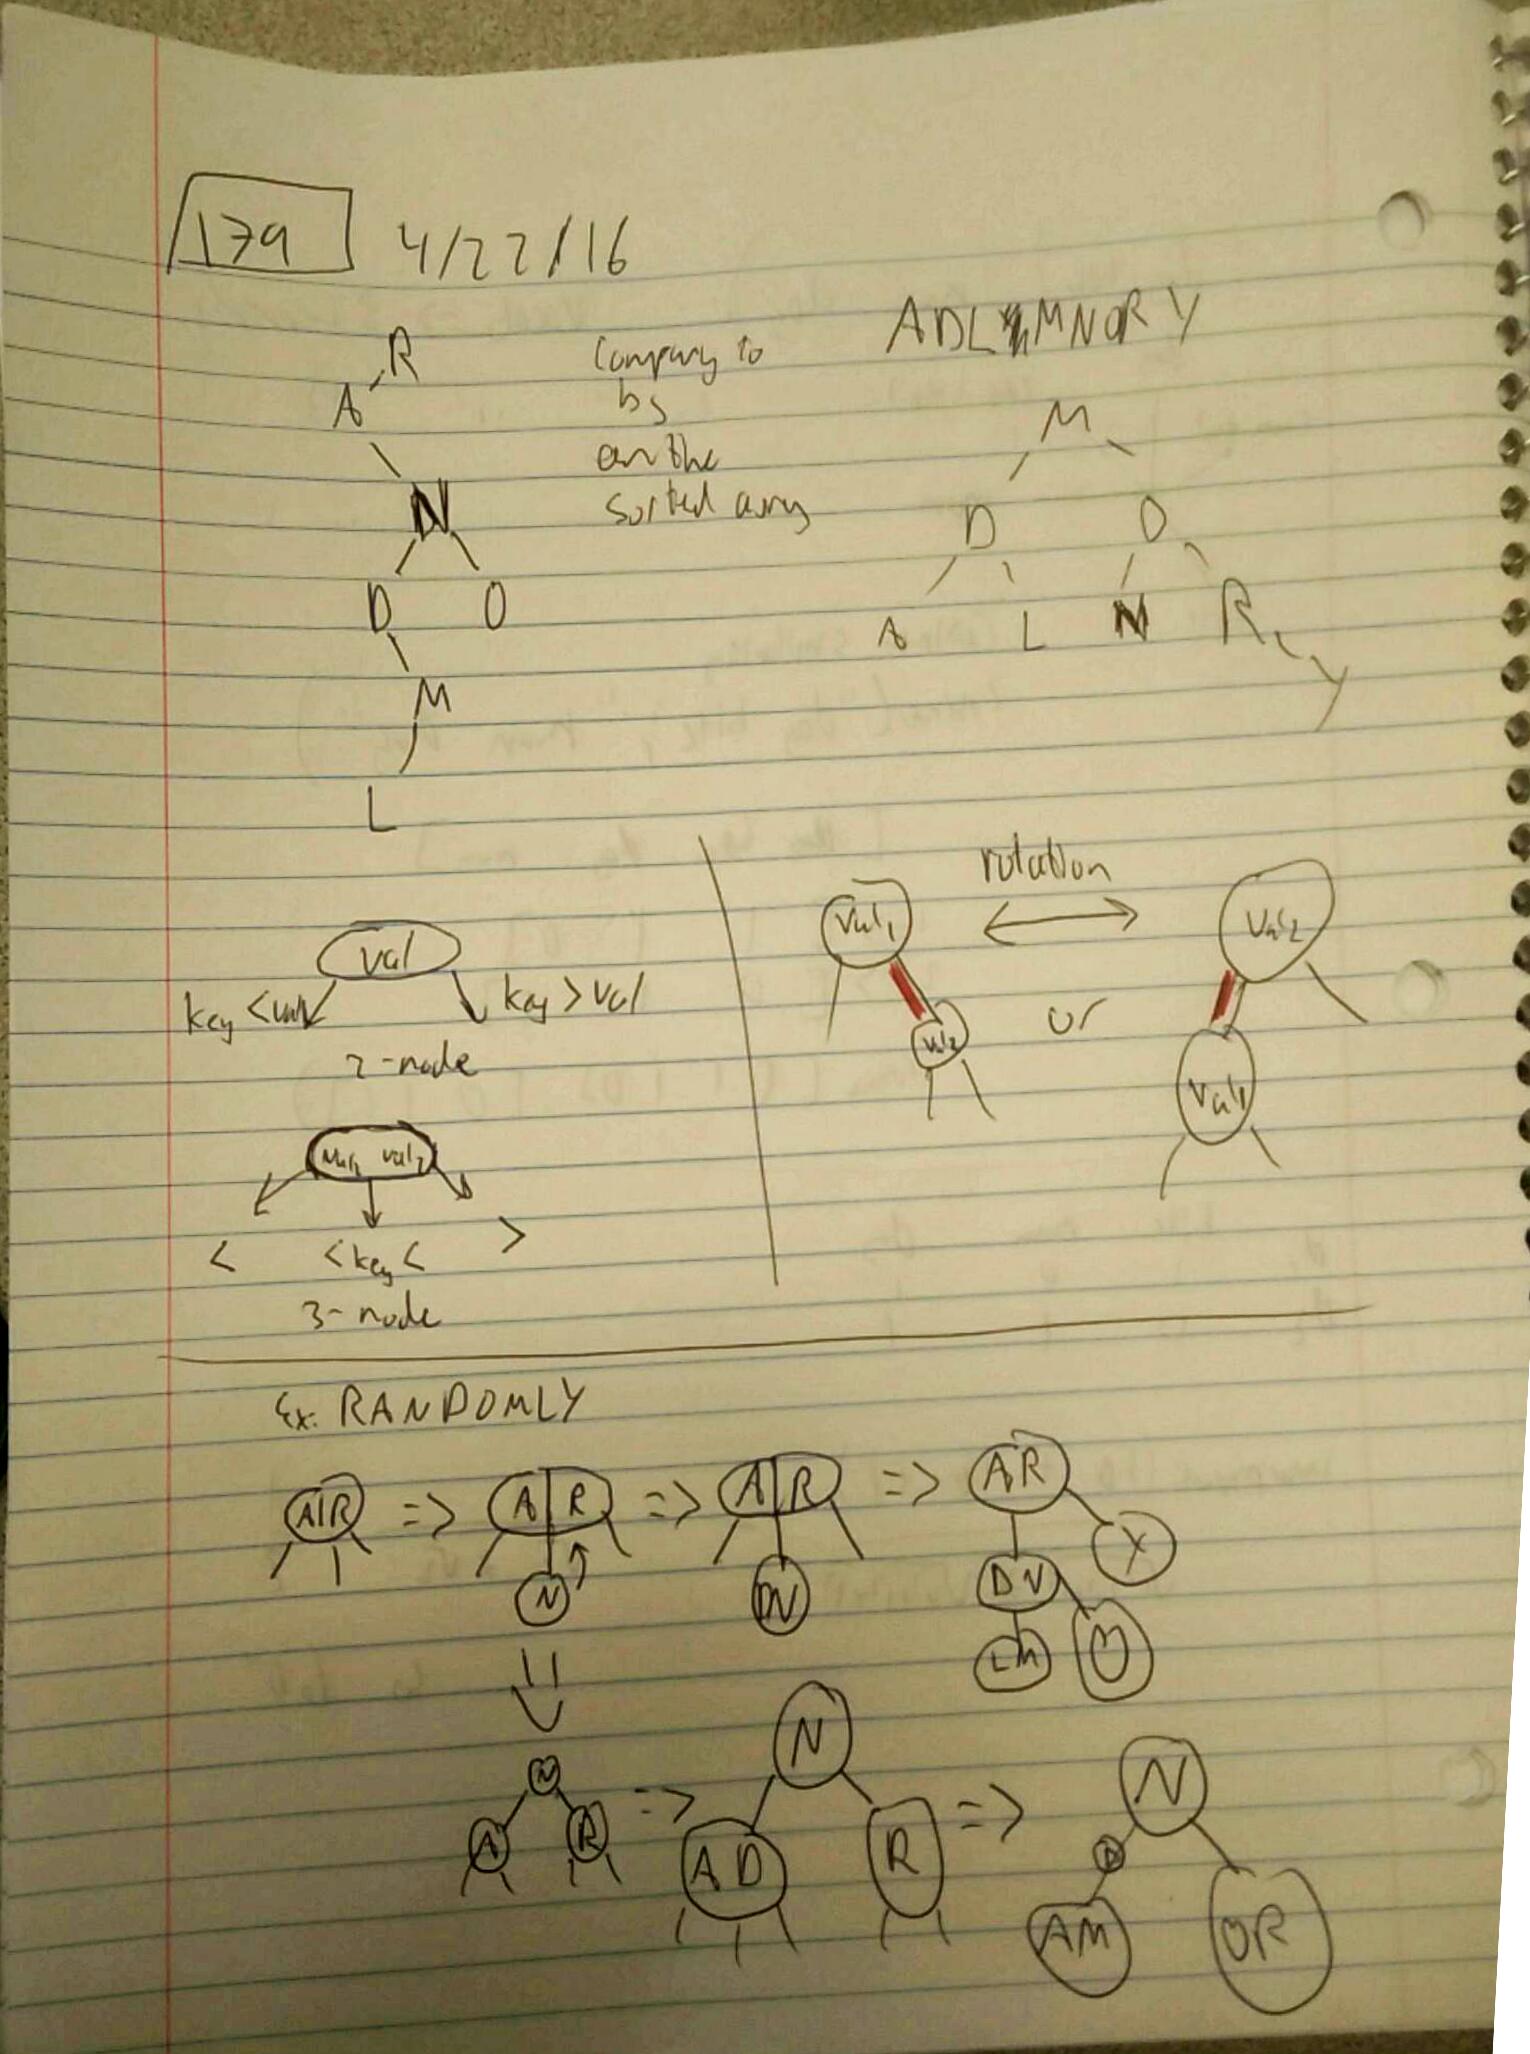 179 4/22/16
R
A
N
D O
M
L
Compare to
bs
on the
sorted array
ADL MNOR Y
M
D O
A L N R
Y
val
key < val key > val
2-node
val1 val2
< < key < >
3-node
rotation
val1 val2
or
val2 val1
Ex. RANDOMLY
A|R => A|R => A|R => AR
N DN DN Y
LM O
N => N => N
A R AD R D
AM OR